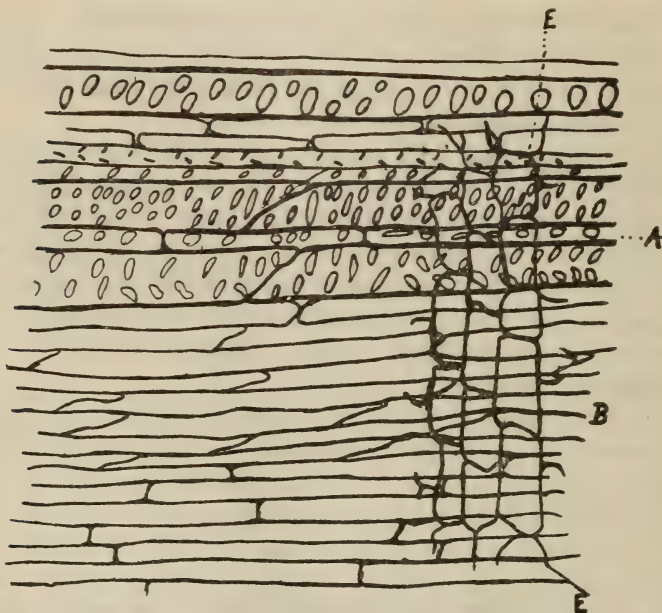 E
A
B
E